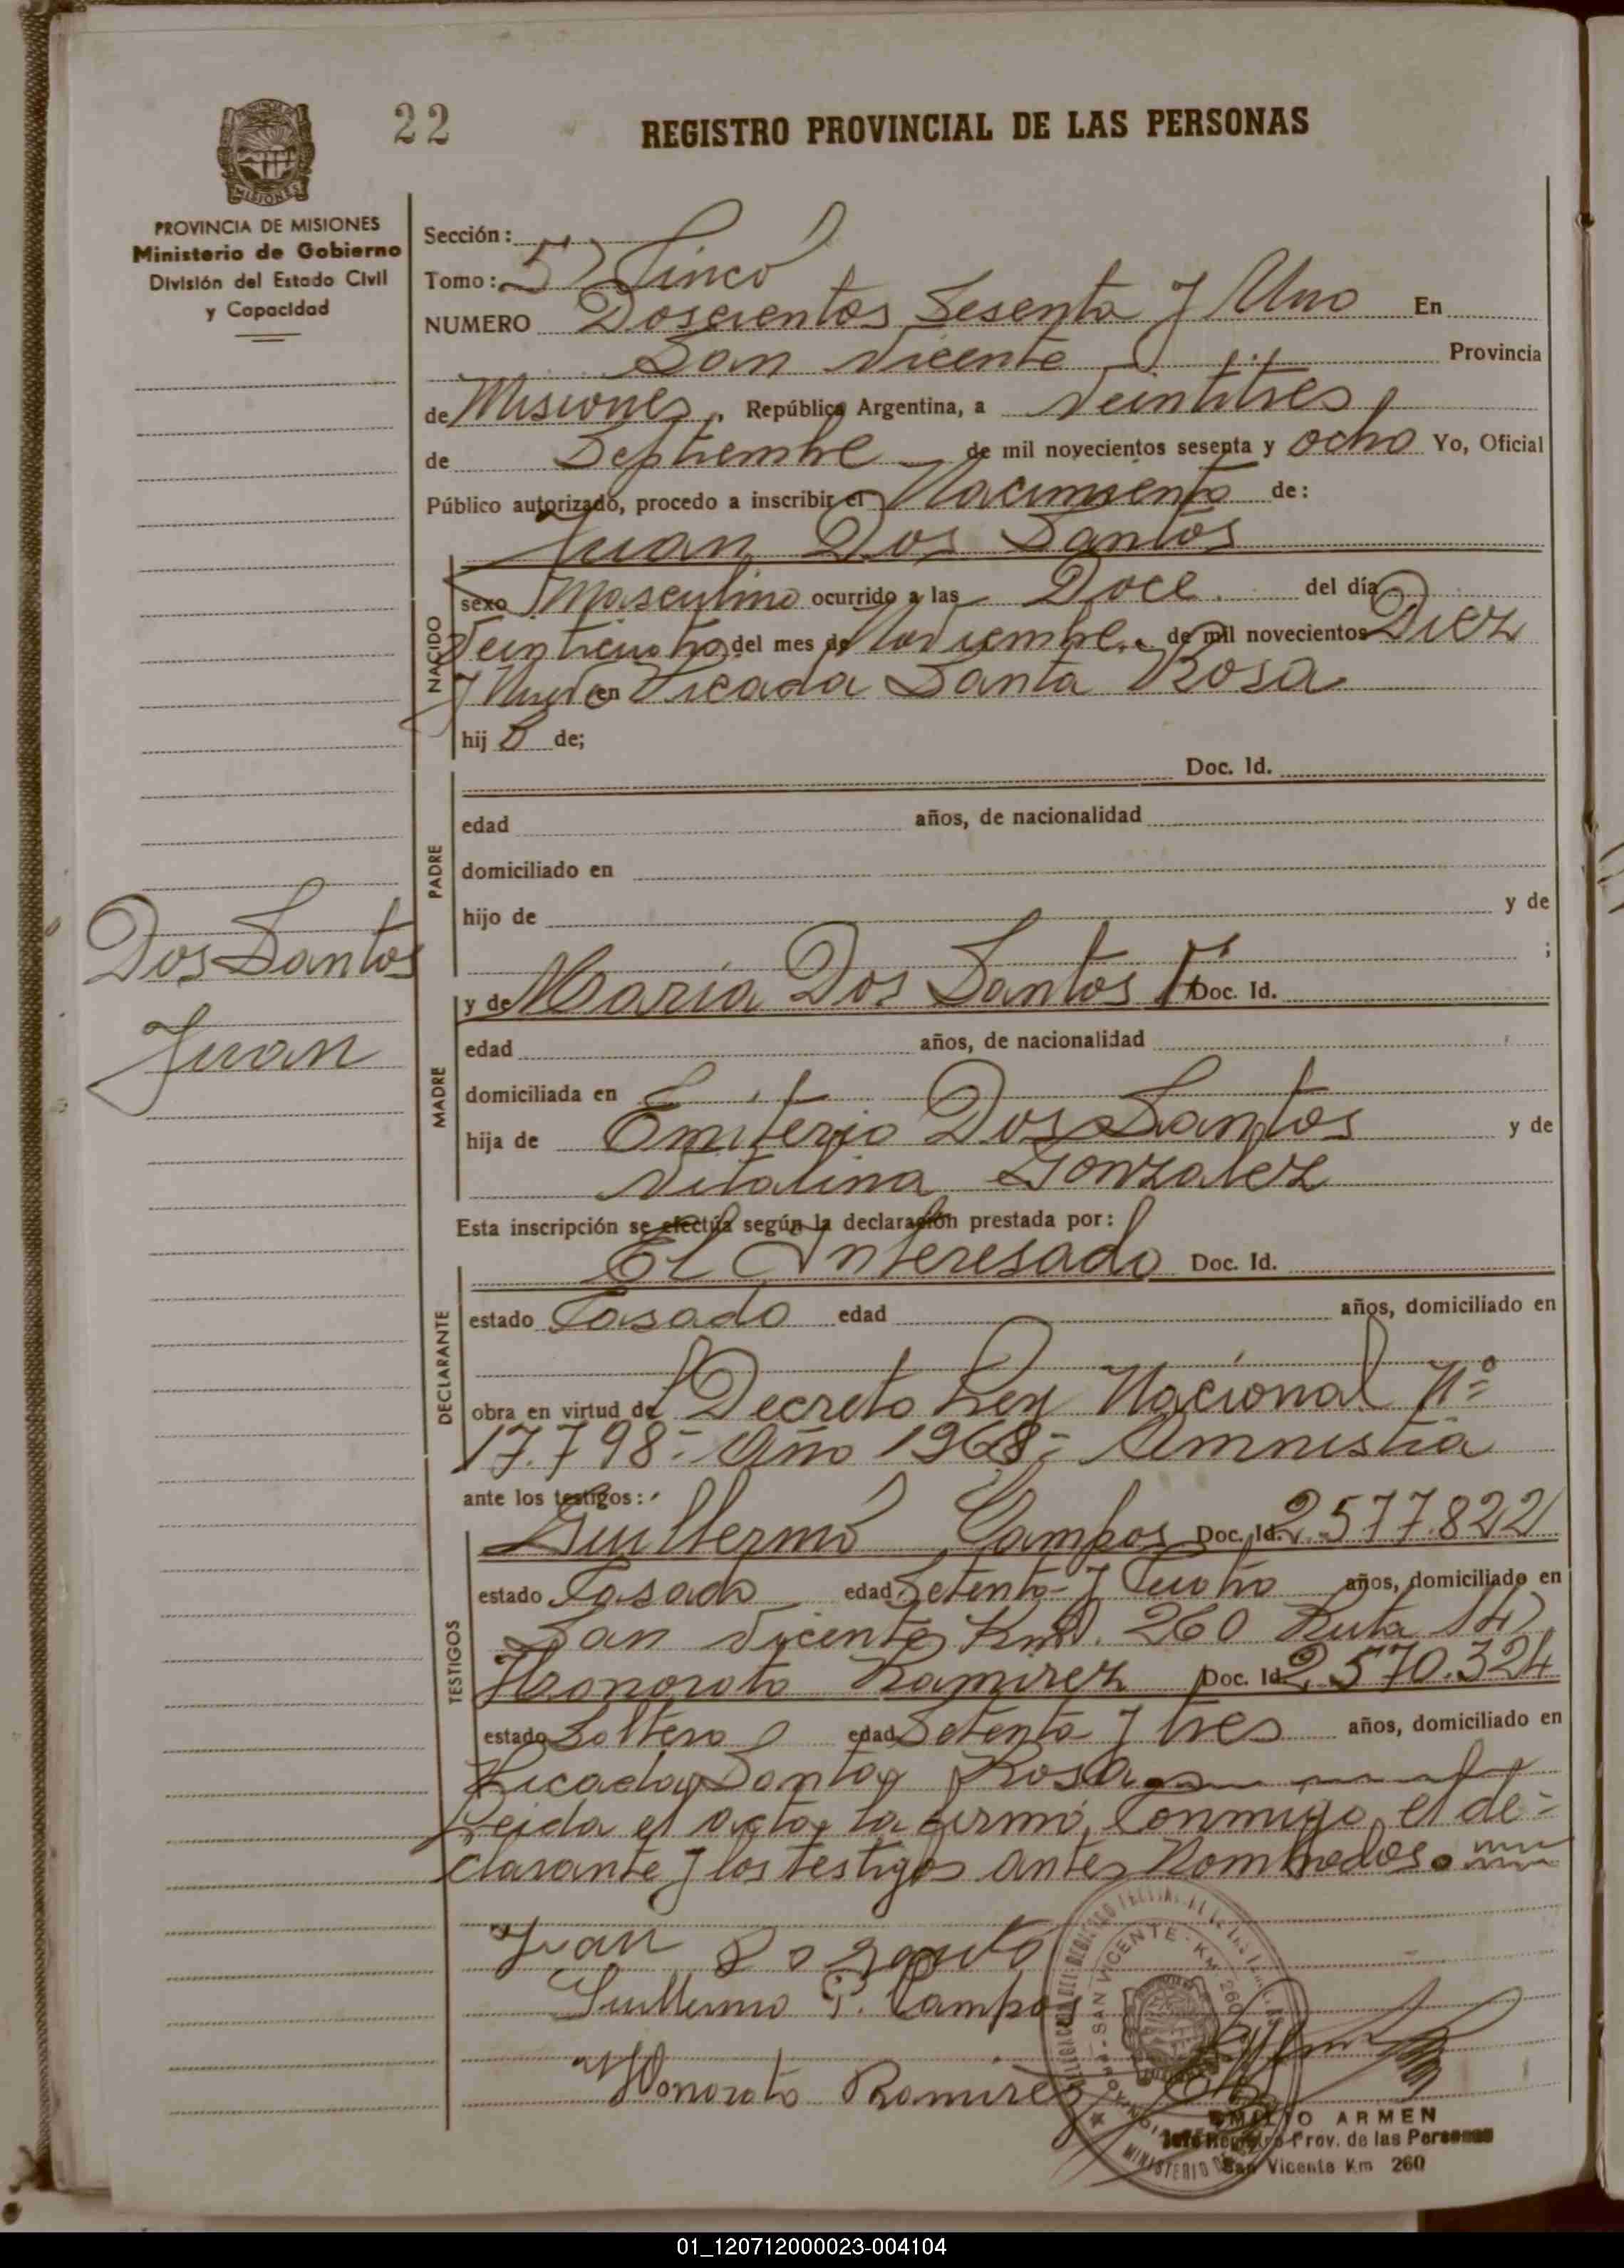 22
REGISTRO PROVINCIAL DE LAS PERSONAS
MISIONES
PROVINCIA DE MISIONES
Ministerio de Gobierno
División del Estado Civil
y Capacidad
Sección:
Tomo: 5) Sinco
NUMERO Doscientos Sesenta y Uno En
San Vicente Provincia
de Misiones, República Argentina, a Veintitres
de Septiembre de mil novecientos sesenta y ocho Yo, Oficial
Público autorizado, procedo a inscribir el Nacimiento de:
Juan Dos Santos
NACIDO
sexo Masculino ocurrido a las Doce. del día
Veinticuatro del mes de Noviembre. de mil novecientos Diez
y Nueve en Picada Santa Rosa
hij o de;
PADRE
Doc. Id.
edad años, de nacionalidad
domiciliado en
hijo de y de
;
Dos Santos
Juan
MADRE
y de Maria Dos Santos Doc. Id.
edad años, de nacionalidad
domiciliada en
hija de Emiterio Dos Santos y de
Vitalina Gonzalez
Esta inscripción se efectúa según la declaración prestada por:
DECLARANTE
El Interesado Doc. Id.
estado Casado edad años, domiciliado en
obra en virtud del Decreto Ley Nacional Nº
17.798- Año 1968- Amnistia
ante los testigos:
TESTIGOS
Guillermo Campos Doc. Id. 2.577.822
estado Casado edad Setenta y Cuatro años, domiciliado en
San Vicente Km. 260 Ruta 14)
Honorato Ramirez Doc. Id. 2.570.324
estado Soltero edad Setenta y tres años, domiciliado en
Picada Santa Rosa
Leida el acta, la firmó, Conmigo, el de-
clarante y los testigos antes Nombrados.
Juan
Guillermo P. Campos
Honorato Ramirez
SAN VICENTE - KM 260
MINISTERIO
EMILIO ARMEN
Jefe Registro Prov. de las Personas
San Vicente Km 260
01_120712000023-004104